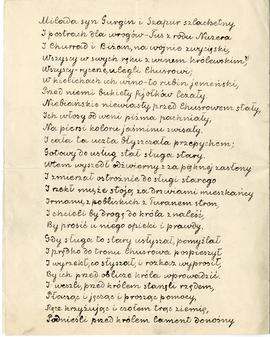 Milada syn Gurgin i Szapur szlachetny
I postrach dla wrogów - Tus z rodu Nuzera
I Churrad i Biżan, na wojnie zwycięski,
Wszyscy w swych ręku z winem królewskiem,
Wszyscy rycerze ulegli Chusrowi;
W kielichach ich wino - to rubin jemeński,
Przed niemi bukiety fijołków leżały
Niebiańskie niewiasty przed Chusrowem stały,
Ich włosy od woni piżma pachniały,
Na piersi koloru jaśminu zwisały.
I cała ta uczta błyszczała przepychem;
Gotowy do usług stał sługa stary.
Wtem wyszedł odźwierny z za pięknej zasłony
I zmierzał ostrożnie do sługi starego
I rzekł muże stoją za drzwiami mieszkańcy
Irmanu, z pobliskich z Turanem stron,
I chcieli by drogę do króla znaleść,
By prosić u niego opieki i prawdy.
Gdy sługa to stary usłyszał, pomyślał
I prędko do tronu Chusrowa pospieszył
I wyrzekł, co słyszał, i rozkaz wyprosił,
By ich przed oblicze króla wprowadzić.
I weszli, przed królem stanęli rzędem,
Płacząc i jęcząc i prosząc pomocy,
Ręce krzyżując i czołem trąc ziemię,
Podnieśli przed królem lament donośny